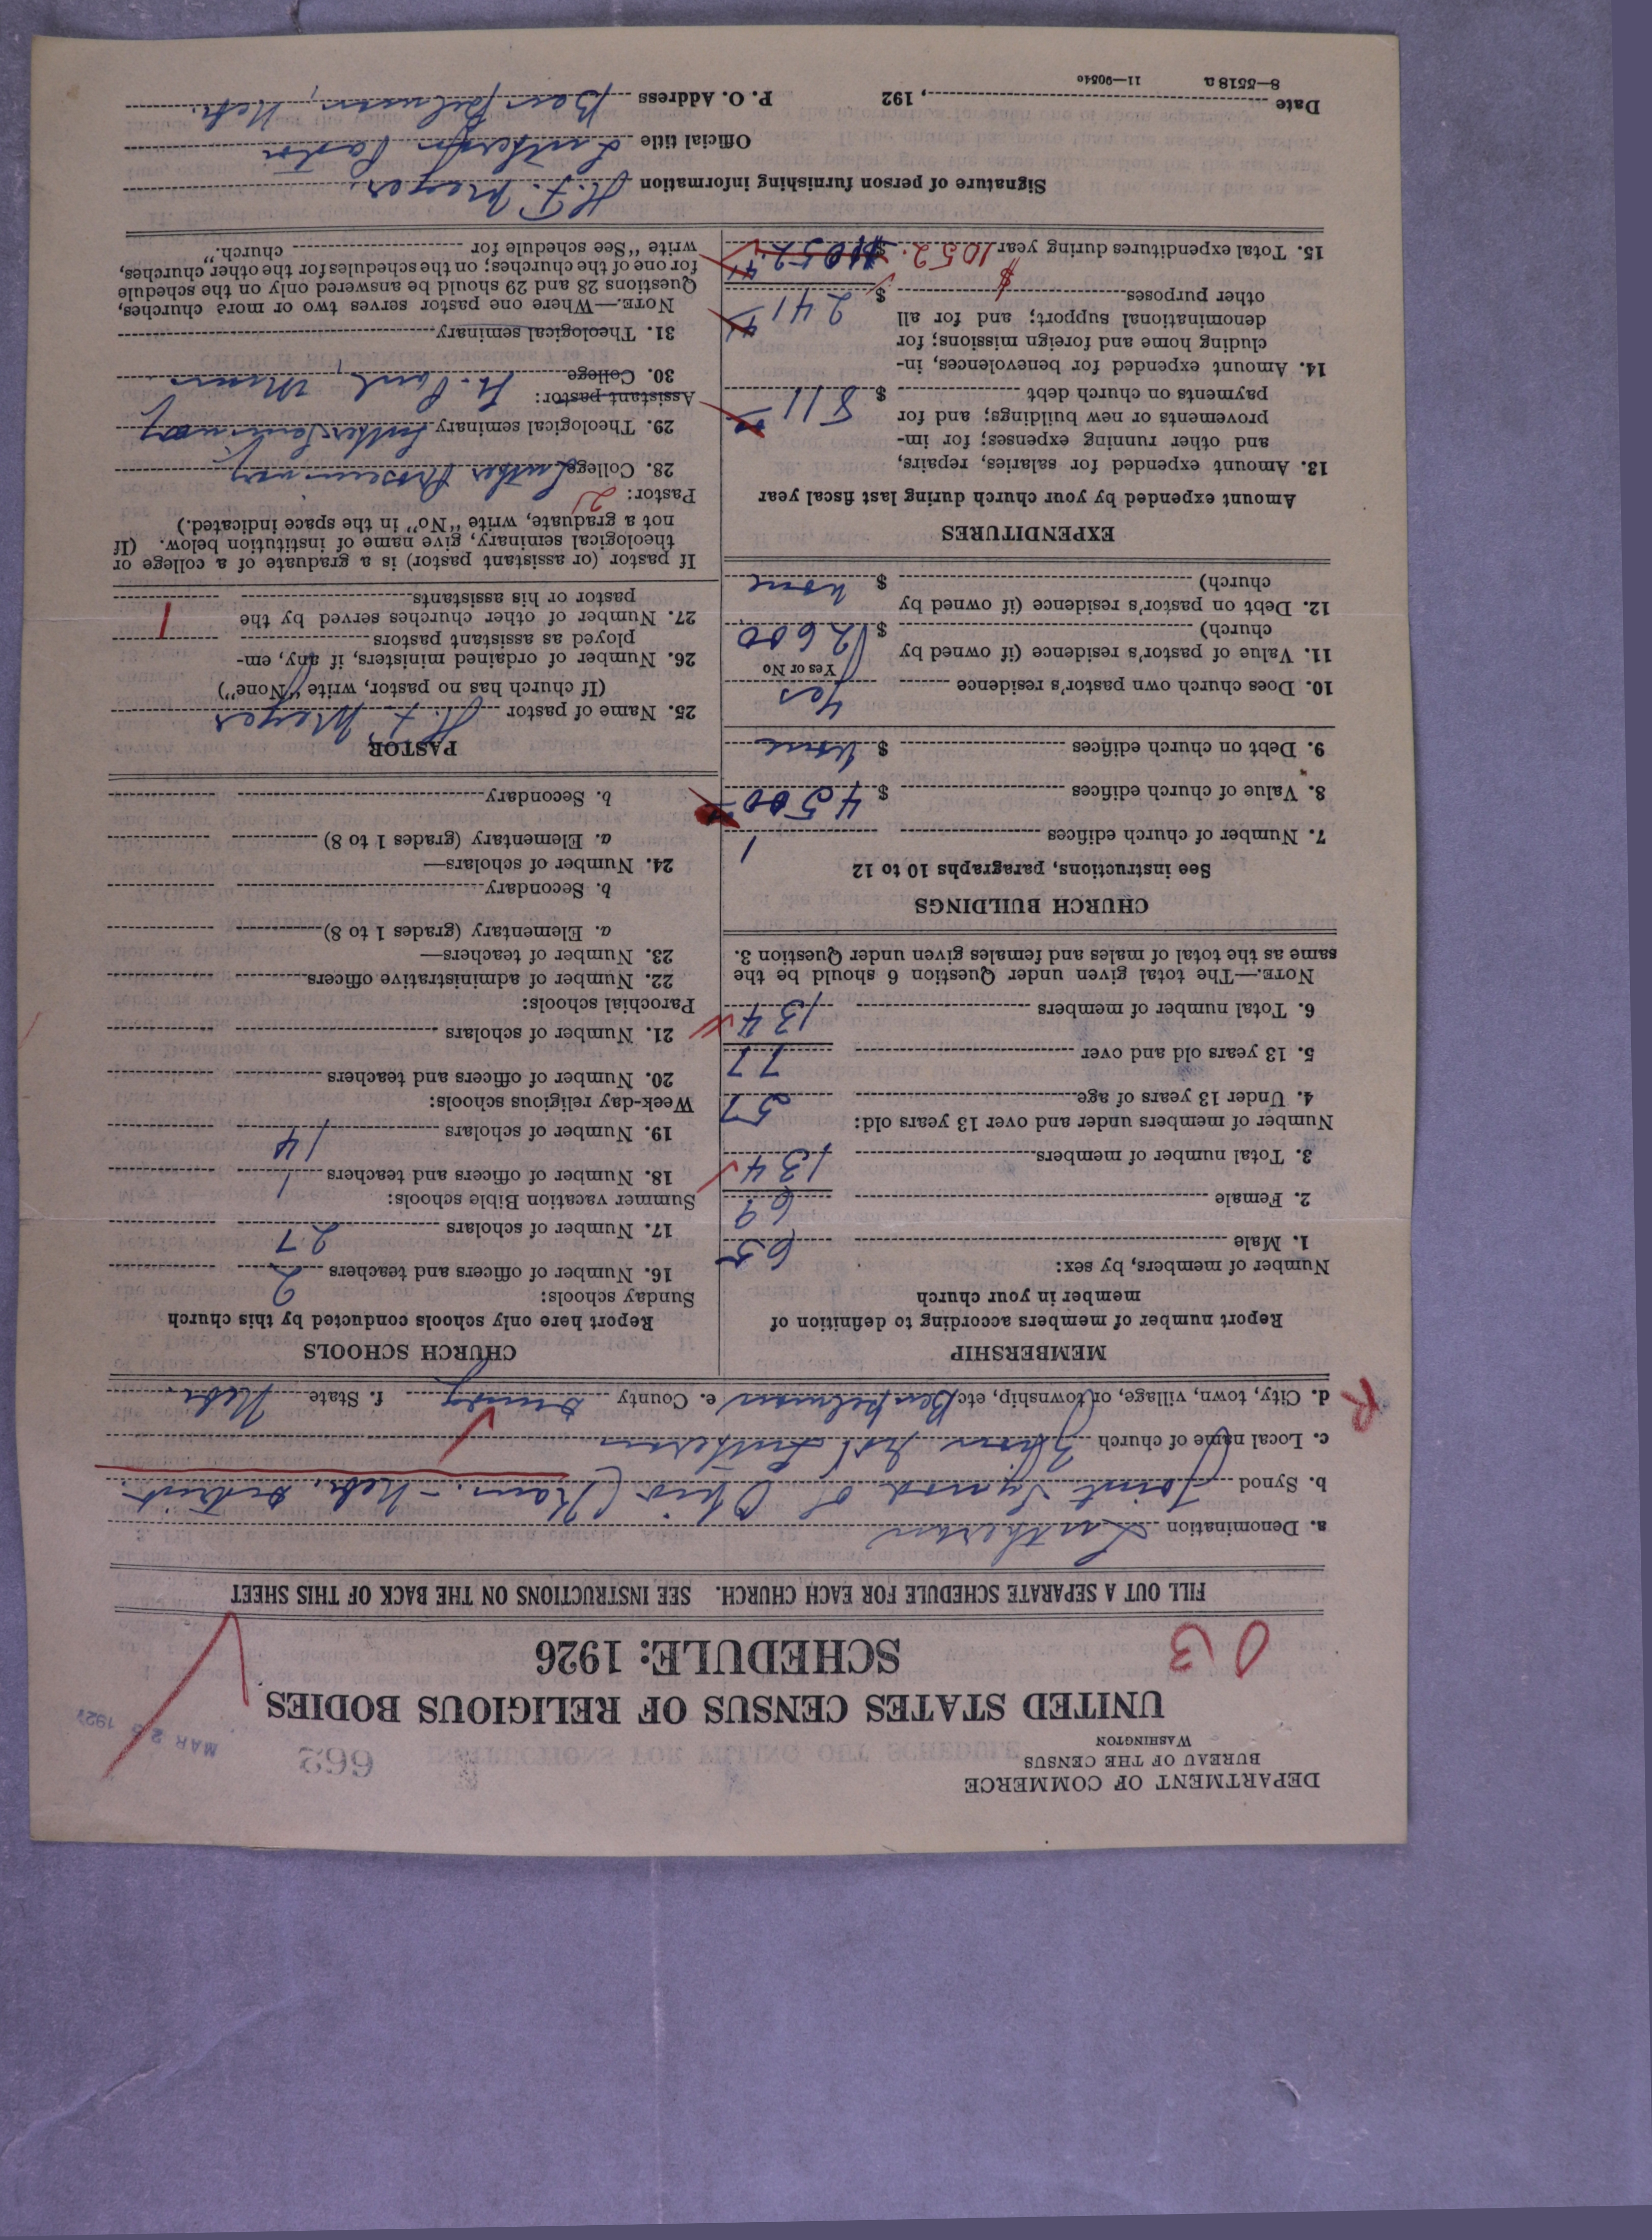 DEPARTMENT OF COMMERCE
BUREAU OF THE CENSUS
WASHINGTON
662
MAR 2 1927
UNITED STATES CENSUS OF RELIGIOUS BODIES
SCHEDULE: 1926
FILL OUT A SEPARATE SCHEDULE FOR EACH CHURCH. SEE INSTRUCTIONS ON THE BACK OF THIS SHEET
a. Denomination Lutheran
b. Synod Joint Synod of Ohio (Kans.-Nebr. District.
c. Local name of church Lutheran
d. City, town, village, or township, etc. Benkelman e. County Dundy f. State Nebr.
R
MEMBERSHIP
Report number of members according to definition of
member in your church
Number of members, by sex:
1. Male 65
2. Female 69
3. Total number of members 134
Number of members under and over 13 years old:
4. Under 13 years of age 57
5. 13 years old and over 77
6. Total number of members 134
NOTE.—The total given under Question 6 should be the
same as the total of males and females given under Question 3.
CHURCH BUILDINGS
See instructions, paragraphs 10 to 12
7. Number of church edifices 1
8. Value of church edifices $ 4500
9. Debt on church edifices $ none
10. Does church own pastor's residence Yes
Yes or No
11. Value of pastor's residence (if owned by
church) $ 2600
12. Debt on pastor's residence (if owned by
church) $ none
EXPENDITURES
Amount expended by your church during last fiscal year
13. Amount expended for salaries, repairs,
and other running expenses; for im-
provements or new buildings; and for
payments on church debt $ 811
14. Amount expended for benevolences, in-
cluding home and foreign missions; for
denominational support; and for all
other purposes $ 241
15. Total expenditures during year $1052. $1052
CHURCH SCHOOLS
Report here only schools conducted by this church
Sunday schools:
16. Number of officers and teachers 2
17. Number of scholars 27
Summer vacation Bible schools:
18. Number of officers and teachers 1
19. Number of scholars 14
Week-day religious schools:
20. Number of officers and teachers
21. Number of scholars
Parochial schools:
22. Number of administrative officers
23. Number of teachers—
a. Elementary (grades 1 to 8)
b. Secondary
24. Number of scholars—
a. Elementary (grades 1 to 8)
b. Secondary
PASTOR
25. Name of pastor H. F. Meyer
(If church has no pastor, write "None")
26. Number of ordained ministers, if any, em-
ployed as assistant pastors
27. Number of other churches served by the
pastor or his assistants 1
If pastor (or assistant pastor) is a graduate of a college or
theological seminary, give name of institution below. (If
not a graduate, write "No" in the space indicated.)
Pastor: 2
28. College Luther Proseminary
29. Theological seminary Luther Seminary
Assistant pastor: St. Paul, Minn
30. College
31. Theological seminary
NOTE.—Where one pastor serves two or more churches,
Questions 28 and 29 should be answered only on the schedule
for one of the churches; on the schedules for the other churches,
write "See schedule for church."
Signature of person furnishing information H. F. Meyer,
Official title Lutheran Pastor
Date , 192 P. O. Address Benkelman, Nebr.
8—5518 a 11—9054c